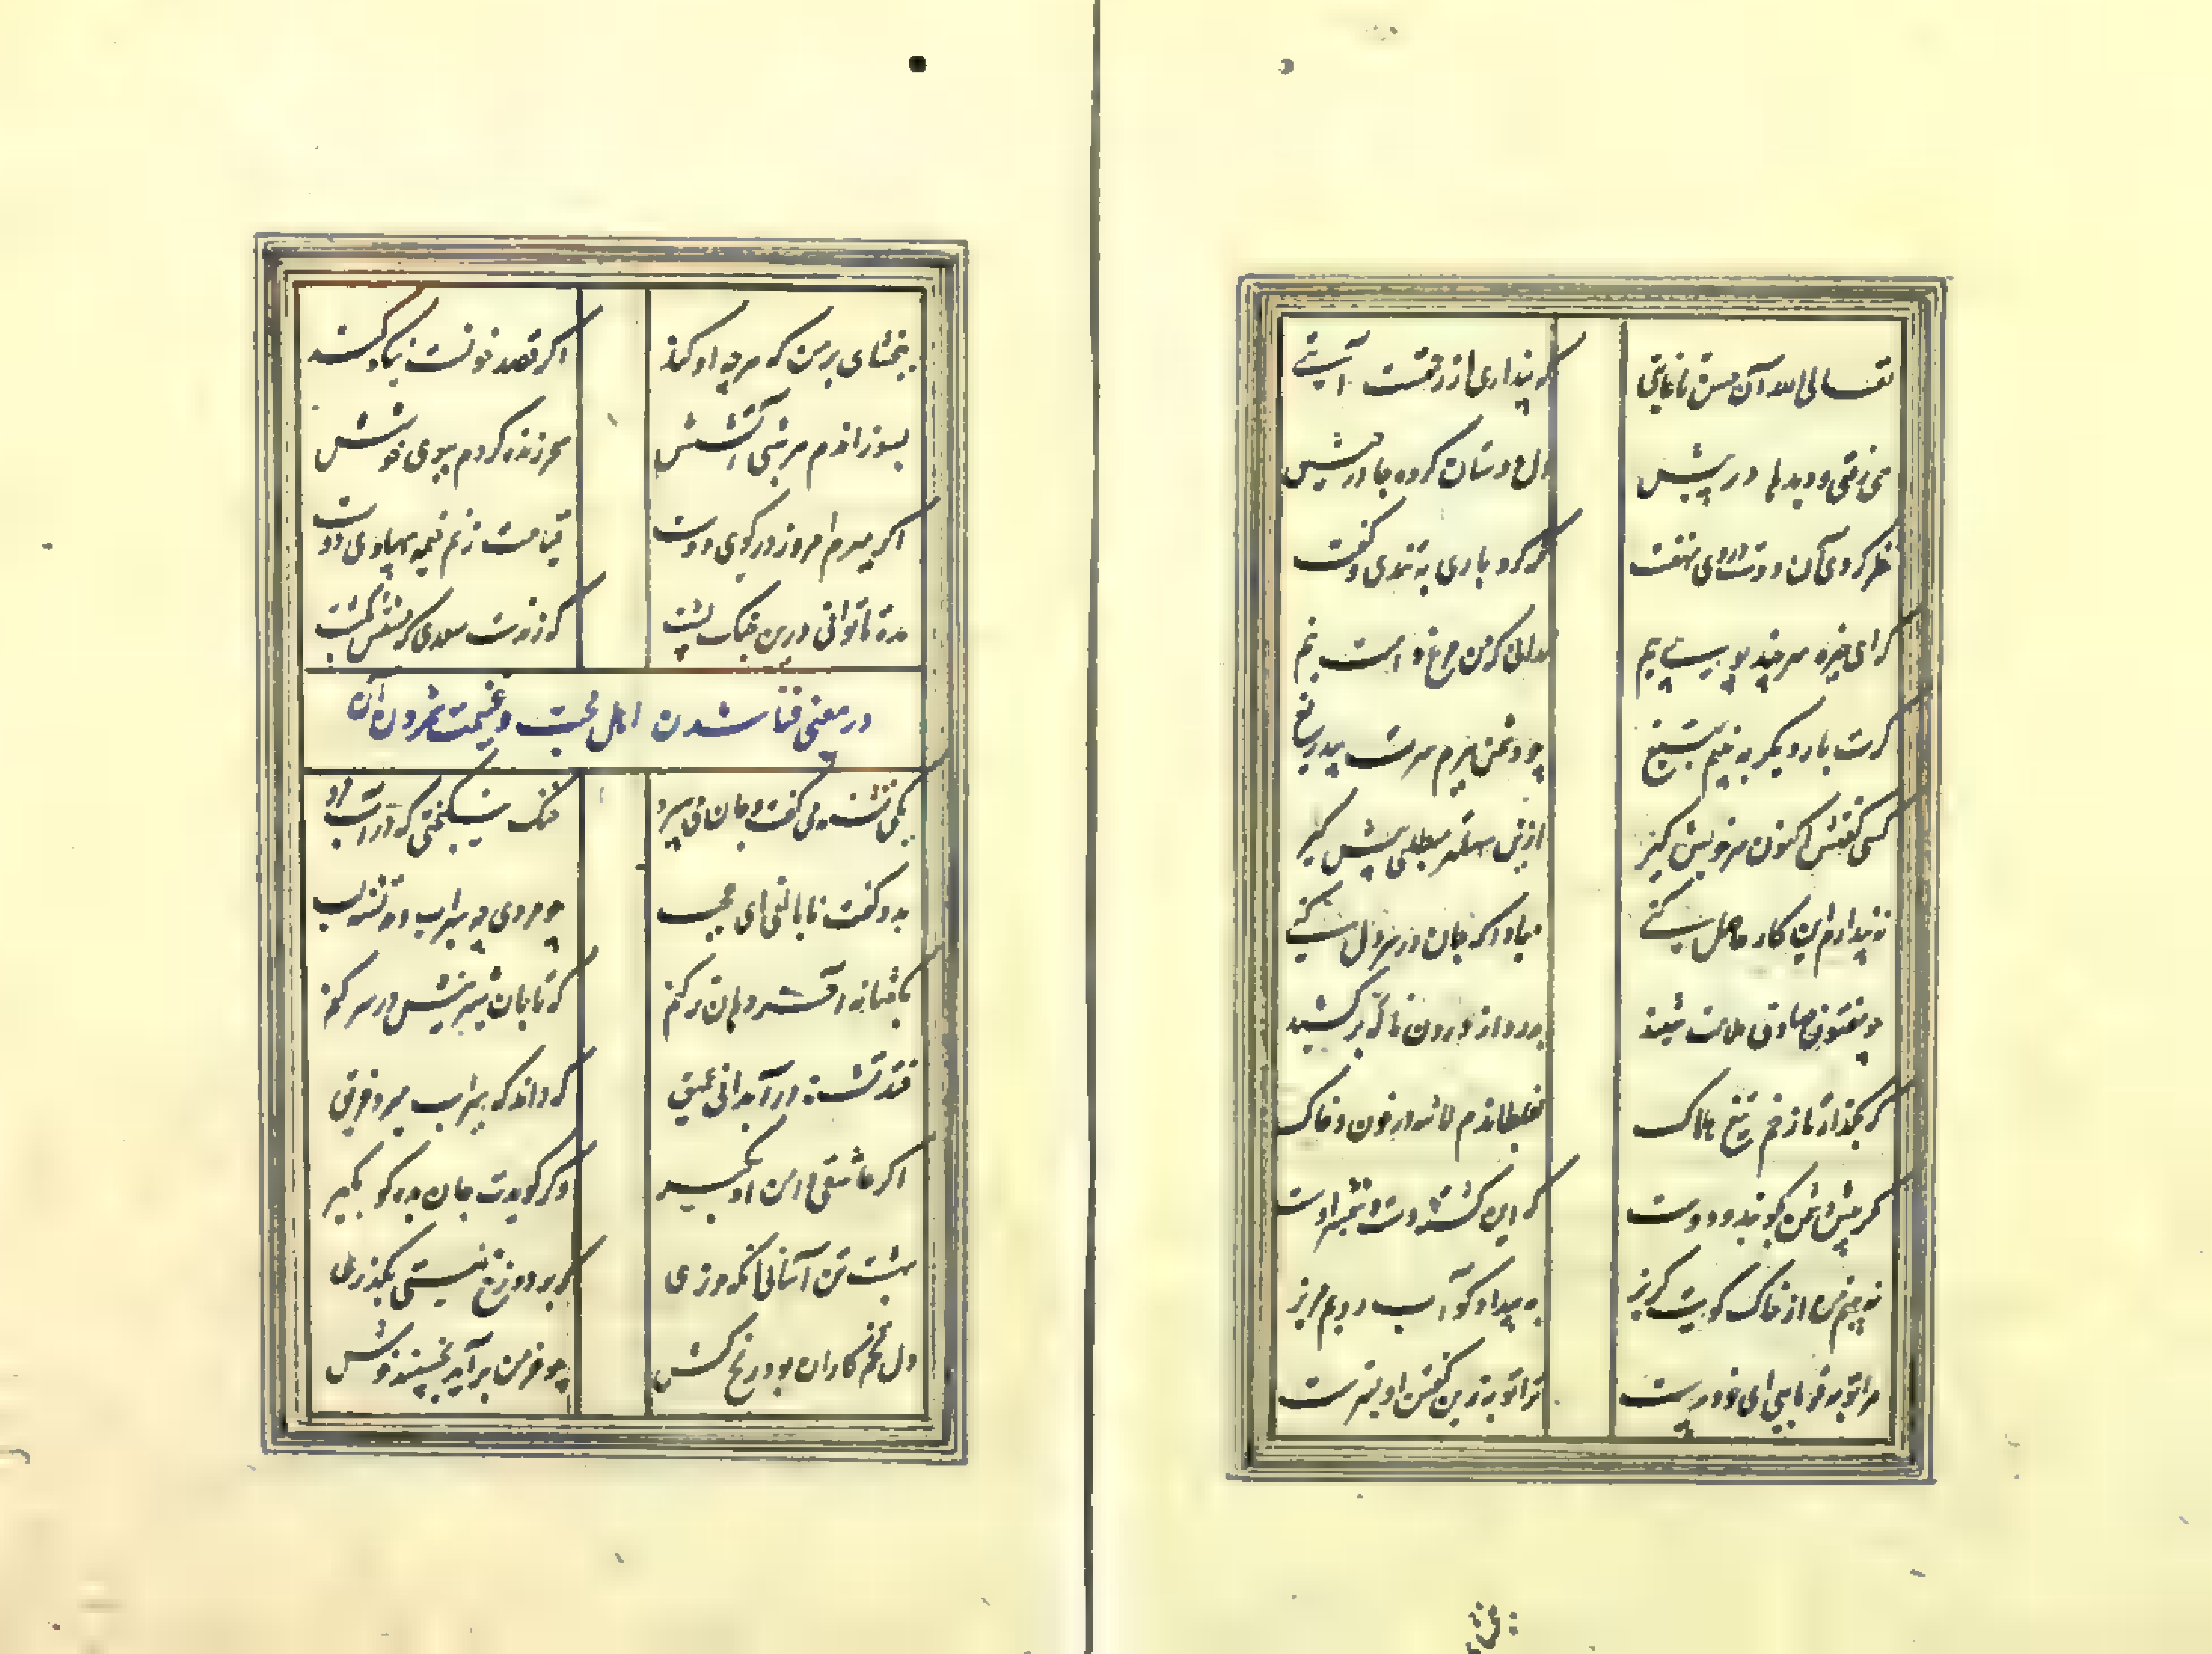 تعالی الله آن حسن تا غایتی که پنداری از رحمتست آیتی
می رفتی و دیدها در پیش دل دوستان کرده جا در پیش
نظر کردی آن دوست در وی نهفت نکه کرد باری به تندی و گفت
که ای خیره سر چند پویی پیم ندانی که من مرغ دامت نیم
گرت بار دیگر به بینم بتیغ چو دشمن ببرم سرت بیدریغ
کسی گفتش اکنون سر خویش گیر ازین سهلتر مطلبی پیش گیر
نپندارم این کار حاصل کنی مبادا که جان در سر دل کنی
چو مفتون صادق ملامت شنید بدرد از درون ناله بر کشید
که بگذار تا زخم تیغ هلاک بغلطاندم لاشه در خون و خاک
مگر پیش دشمن گویند و دوست که این کشته دست و شمشیر اوست
نمی بینم از خاک کویت گریز به بیداد گو آب رویم بریز
مرا توبه فرمایی ای خودپرست ترا توبه زین گفتن اولیترست
ببخشای
ببخشای بر من که هرچه او کند اگر قصد خونست نیکو کند
بسوزاندم هر شبی آتشش سحر زنده گردم ببوی خوشش
اگر میرم امروز در کوی دوست قیامت زنم خیمه پهلوی دوست
مده تا توانی درین جنگ پشت که زنده است سعدی که عشقش بکشت
در معنی فنا شدن اهل محبت و غنیمت شمردن آن
یکی تشنه می گفت و جان می سپرد خنک نیکبختی که در آب مرد
بدو گفت نابالغی ای عجب چو مردی چه سیراب و چه تشنه لب
بگفتا نه آخر دهان تر کنم که تا جان شیرینش در سر کنم
فتد تشنه در آبدانی عمیق که داند که سیراب میرد غریق
اگر عاشقی دامن او بگیر وگر گویدت جان بده گو بگیر
بهشت تن آسانی آنگه خوری که بر دوزخ نیستی بگذری
دل تخم کاران بود رنج کش چو خرمن برآید بخسپند خوش